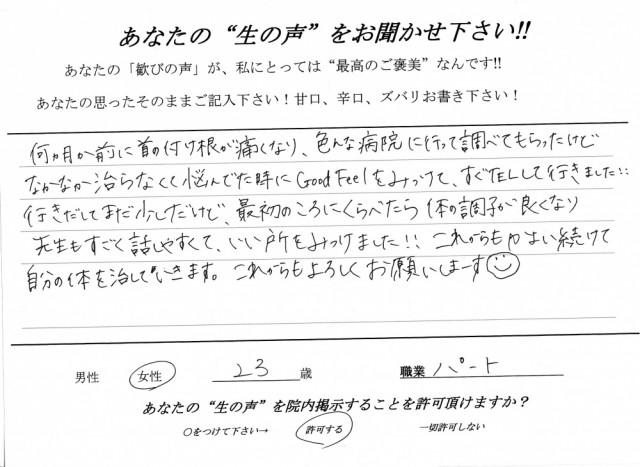 あなたの“生の声”をお聞かせ下さい!!
あなたの「歓びの声」が、私にとっては“最高のご褒美”なんです!!
あなたの思ったそのままご記入下さい！甘口、辛口、ズバリお書き下さい！
何ヵ月か前に首の付け根が痛くなり、色んな病院に行って調べてもらったけど
なかなか治らなくて悩んでた時にGood Feelをみつけて、すぐTELして行きました!!
行きだしてまだ少しだけど、最初のころにくらべたら体の調子が良くなり
先生もすごく話しやすくて、いい所をみつけました!! これからもかよい続けて
自分の体を治していきます。これからもよろしくお願いしまーす
男性 女性 23歳 職業 パート
あなたの“生の声”を院内掲示することを許可頂けますか？
○をつけて下さい→ 許可する 一切許可しない